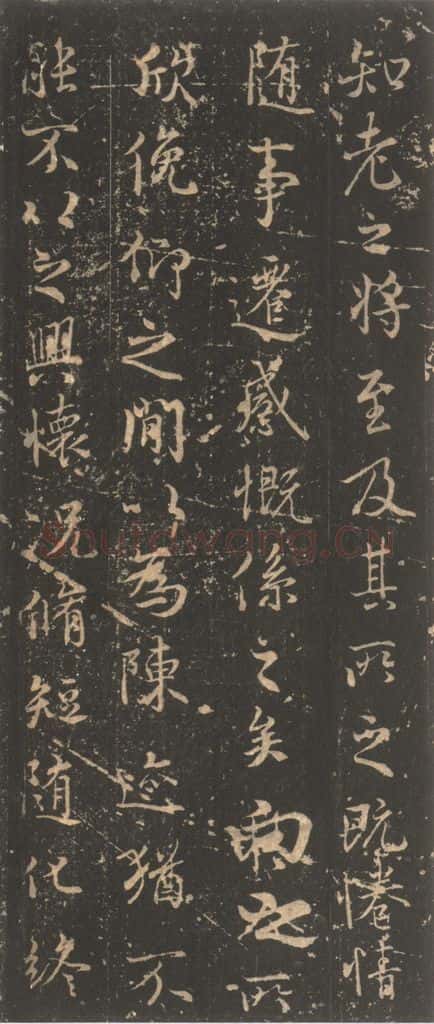 知老之將至及其所之既惓情
隨事遷感慨係之矣向之所
欣俛仰之間以為陳迹猶不
能不以之興懷況脩短隨化終
Shufawang.cn